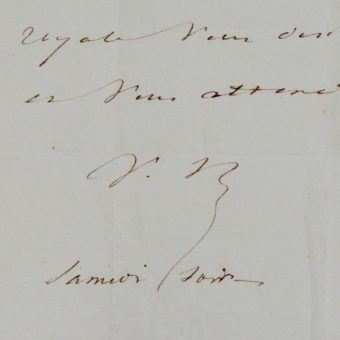 royale vous don
et vous attend
V. H
Samedi soir